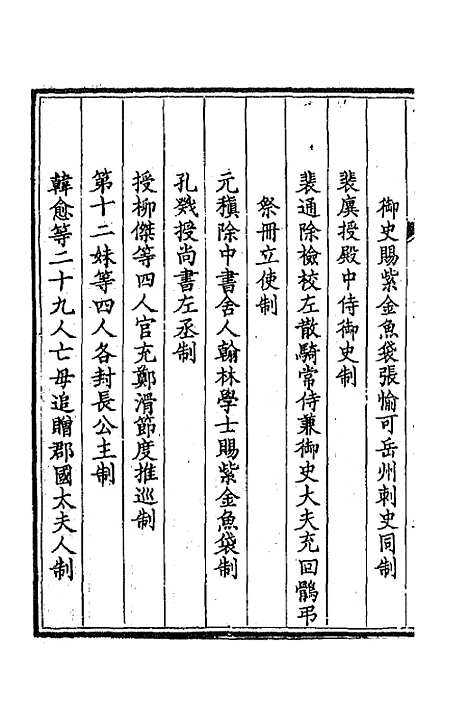 御史賜紫金魚袋張愉可岳州刺史同制
裴廙授殿中侍御史制
裴通除檢校左散騎常侍兼御史大夫充回鶻弔
祭冊立使制
元稹除中書舍人翰林學士賜紫金魚袋制
孔戣授尚書左丞制
授柳傑等四人官充鄭滑節度推巡制
第十二妹等四人各封長公主制
韓愈等二十九人亡母追贈郡國太夫人制